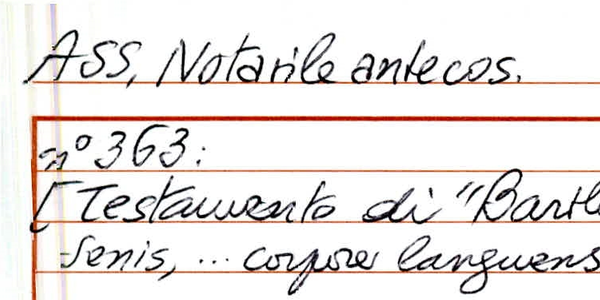 ASS, Notarile antecos.
n° 363:
[Testamento di "Bartl
Senis, ... corpore languens